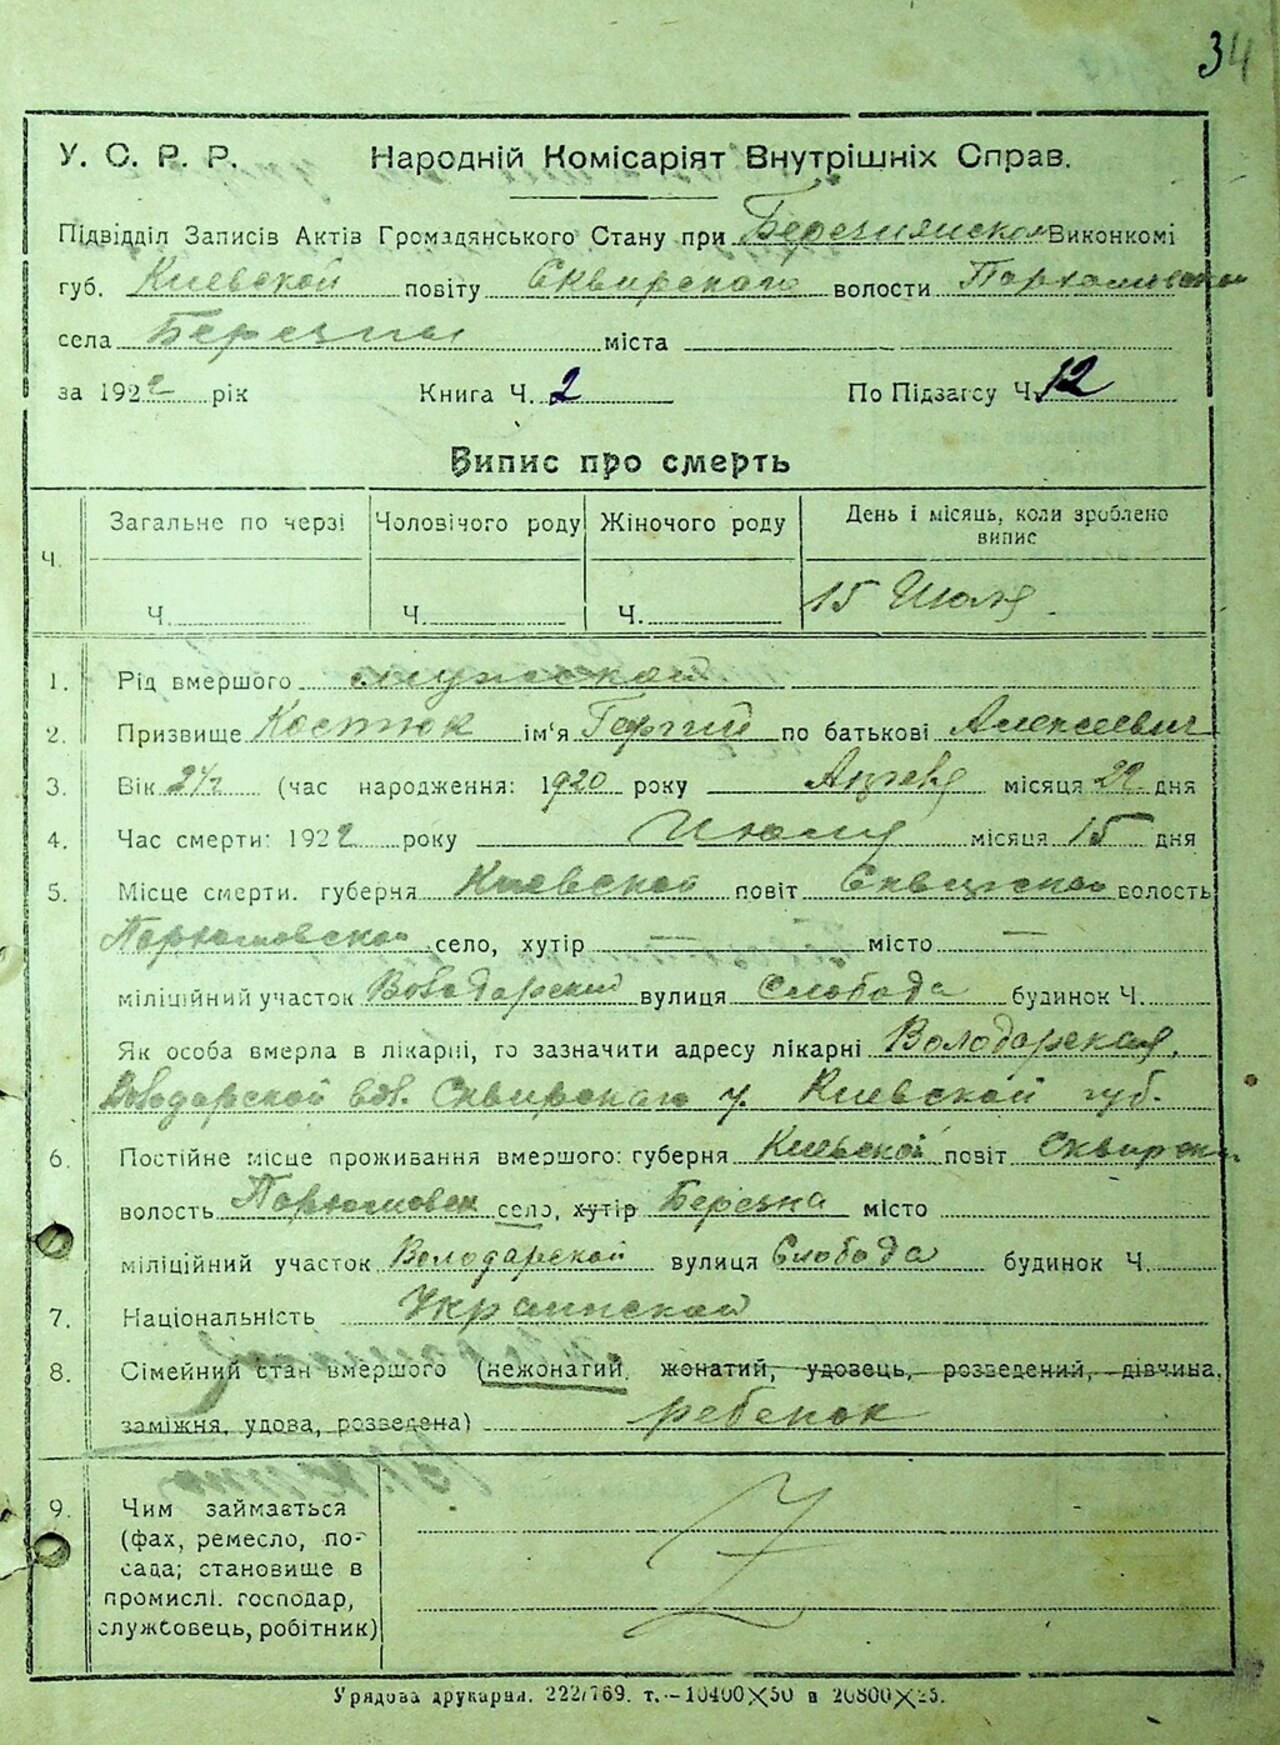 34
У. С. Р. Р. Народній Комісаріят Внутрішніх Справ.
Підвідділ Записів Актів Громадянського Стану при Березнянском Виконкомі
губ. Киевской повіту Сквирского волости Пархомовской
села Березны міста
за 1922 рік Книга Ч. 2 По Підзагсу Ч. 12
Випис про смерть
Ч. Загальне по черзі Чоловічого роду Жіночого роду День і місяць, коли зроблено випис
Ч. Ч. Ч. 15 Июля
1. Рід вмершого мужской
2. Призвище Костюк ім'я Георгий по батькові Алексеевич
3. Вік (час народження: 1920 року місяця 22 дня
4. Час смерти: 1922 року Июля місяця 15 дня
5. Місце смерти. губерня Киевской повіт Сквирской волость
Пархомовской село, хутір — місто —
міліційний участок Володарский вулиця Слобода будинок Ч.
Як особа вмерла в лікарні, то зазначити адресу лікарні Володарская,
Володарской вол. Сквирского у. Киевской губ.
6. Постійне місце проживання вмершого: губерня Киевской повіт Сквирск
волость Пархомовск село, хутір Березна місто
міліційний участок Володарской вулиця Слобода будинок Ч.
7. Національність Украинской
8. Сімейний стан вмершого (нежонатий, жонатий, удовець, розведений, дівчина,
заміжня, удова, розведена) ребенок
9. Чим займається
(фах, ремесло, по-
сада; становище в
промислі. господар,
службовець, робітник)
Урядова друкарня. 222/769. т.—10400×50 и 20800×25.